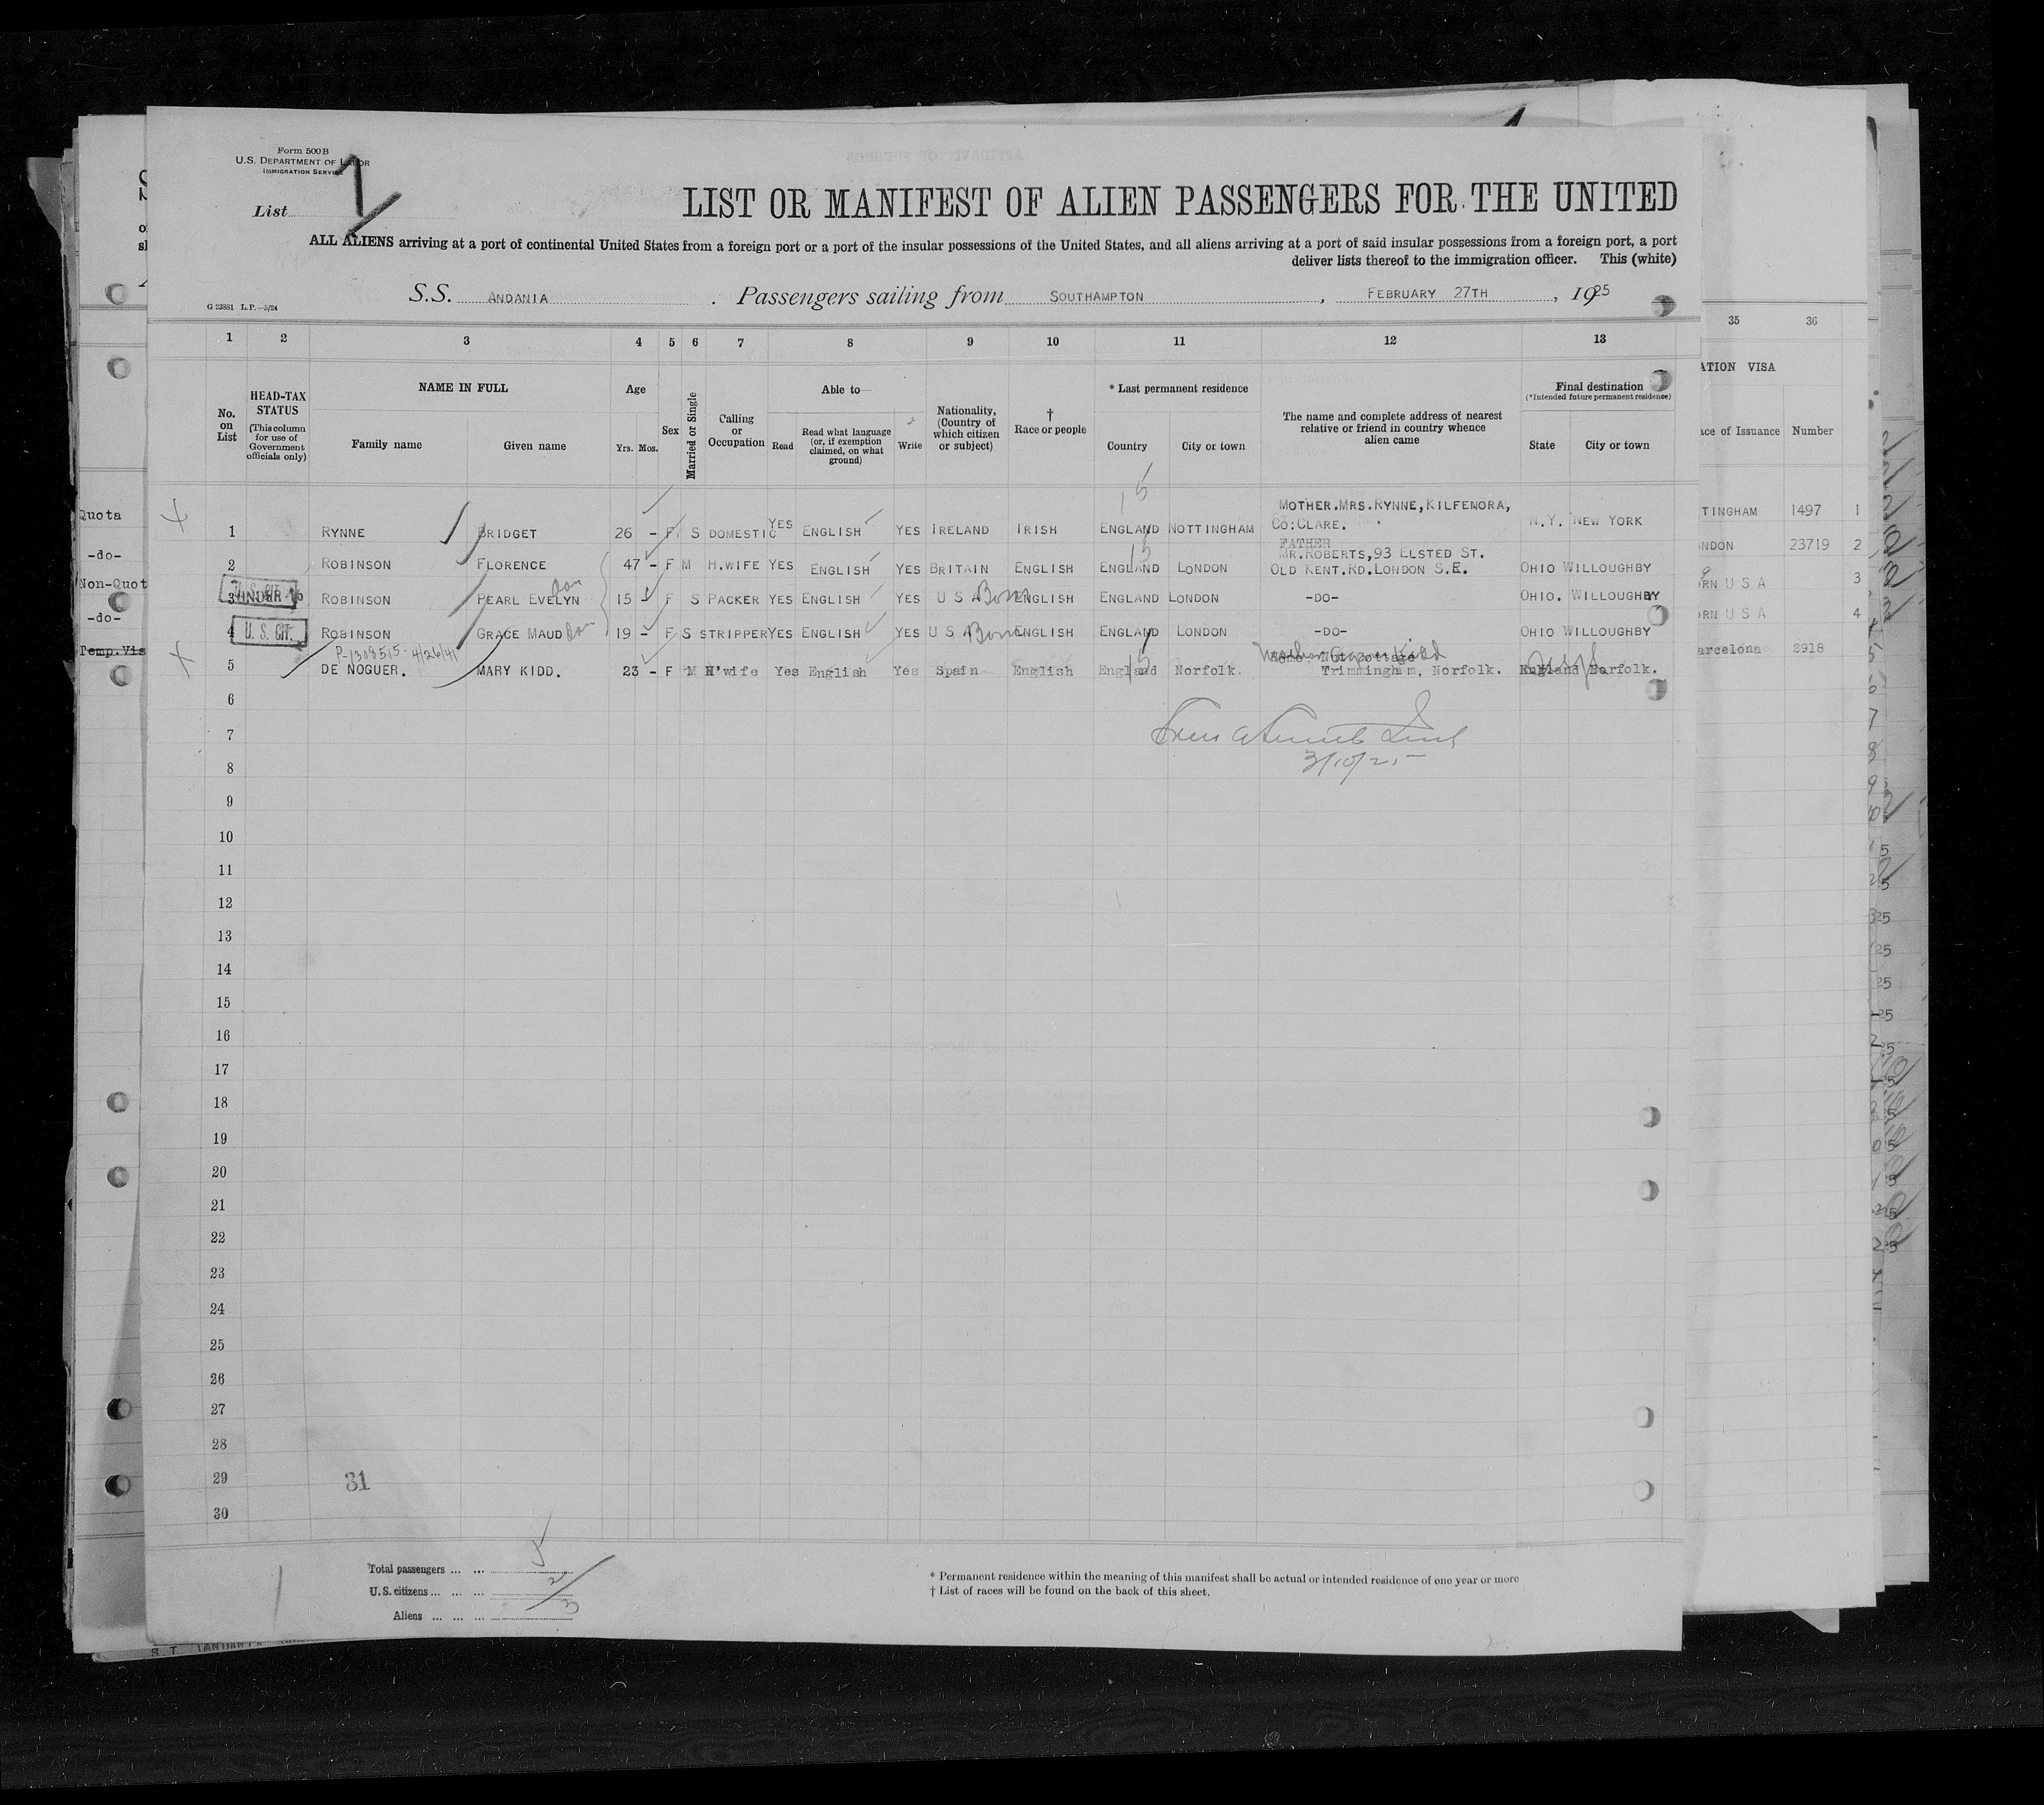 Form 500B
U.S. DEPARTMENT OF LABOR
IMMIGRATION SERVICE
List
LIST OR MANIFEST OF ALIEN PASSENGERS FOR THE UNITED
ALL ALIENS arriving at a port of continental United States from a foreign port or a port of the insular possessions of the United States, and all aliens arriving at a port of said insular possessions from a foreign port, a port
deliver lists thereof to the immigration officer. This (white)
S.S. ANDANIA . Passengers sailing from SOUTHAMPTON , FEBRUARY 27TH , 1925
G 23881 L.P.—5/24
1 2 3 4 5 6 7 8 9 10 11 12 13 35 36
No. on List
HEAD-TAX STATUS (This column for use of Government officials only)
NAME IN FULL
Family name Given name
Age
Yrs. Mos.
Sex
Married or Single
Calling or Occupation
Able to—
Read
Read what language (or, if exemption claimed, on what ground)
Write
Nationality, (Country of which citizen or subject)
† Race or people
* Last permanent residence
Country City or town
The name and complete address of nearest relative or friend in country whence alien came
Final destination
(*Intended future permanent residence)
State City or town
ATION VISA
ace of Issuance Number
MOTHER.MRS.RYNNE,KILFENORA,
Quota 1 RYNNE BRIDGET 26 - F S DOMESTIC YES ENGLISH YES IRELAND IRISH ENGLAND NOTTINGHAM CO:CLARE. N.Y. NEW YORK TTINGHAM 1497 1
FATHER
MR.ROBERTS,93 ELSTED ST.
-do- 2 ROBINSON FLORENCE 47 - F M H.WIFE YES ENGLISH YES BRITAIN ENGLISH ENGLAND LONDON OLD KENT.RD.LONDON S.E. OHIO WILLOUGHBY ONDON 23719 2
Non-Quot U.S. CIT. UNDER 16 3 ROBINSON PEARL EVELYN 15 - F S PACKER YES ENGLISH YES U S A Born ENGLISH ENGLAND LONDON -DO- OHIO. WILLOUGHBY ORN U S A 3
-do- 4 U. S. CIT. ROBINSON GRACE MAUD 19 - F S STRIPPER YES ENGLISH YES U S A Born ENGLISH ENGLAND LONDON -DO- OHIO WILLOUGHBY ORN U S A 4
P-1308515-4/26/41
Temp.Vis 5 DE NOGUER. MARY KIDD. 23 - F M H'wife Yes English Yes Spain English England Norfolk. Trimmingham, Norfolk. England Norfolk. arcelona 2918 5
6
7
3/10/25
8
9
10
11
12
13
14
15
16
17
18
19
20
21
22
23
24
25
26
27
28
29 31
30
Total passengers ... ... 5
U.S. citizens ... ... ... 2
Aliens ... ... ... 3
* Permanent residence within the meaning of this manifest shall be actual or intended residence of one year or more
† List of races will be found on the back of this sheet.